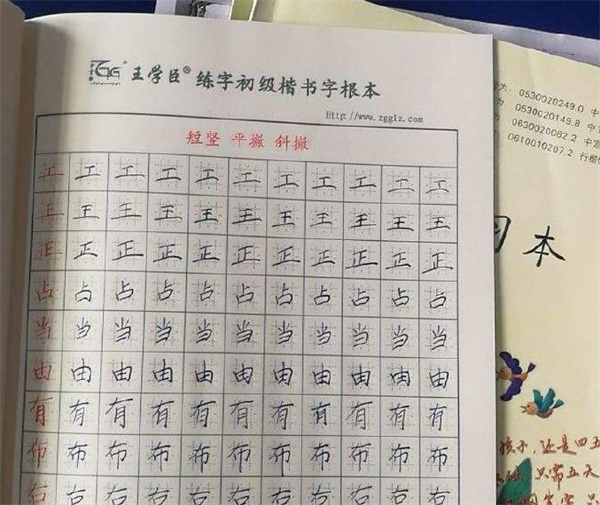 王学臣® 练字初级楷书字根本
Http://www.zgglz.com
短竖 平撇 斜撇
工 工 工 工 工 工 工 工 工 工 工
王 王 王 王 王 王 王 王 王 王 王
正 正 正 正 正 正 正 正 正 正 正
占 占 占 占 占 占 占 占 占 占 占
当 当 当 当 当 当 当 当 当 当 当
由 由 由 由 由 由 由 由 由 由 由
有 有 有 有 有 有 有 有 有 有 有
布 布 布 布 布 布 布 布 布 布 布
右 右 右 右 右 右 右 右 右 右 右
为: 0530020249.0 中
0530020149.8 中
0630020062.2 中
0610010207.2 行楷
本
孩子, 还是四五
只需五天